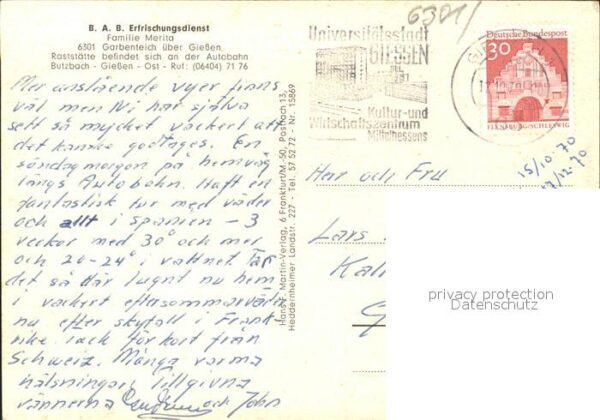 6301/
B. A. B. Erfrischungsdienst
Familie Merita
6301 Garbenteich über Gießen
Raststätte befindet sich an der Autobahn
Butzbach - Gießen - Ost - Ruf: (06404) 71 76
Universitätsstadt
GIESSEN
Kultur-und
Wirtschaftszentrum
Mittelhessens
Deutsche Bundespost
30
FLENSBURG/SCHLESWIG
Mer anslående vyer finns
väl men Ni har själva
sett så mycket vackert att
det kanske godtages. En
söndagmorgon på hemväg
längs Autobahn. Haft en
fantastisk tur med väder
och allt i Spanien - 3
veckor med 30° och mer
och 20-24° i vattnet. Tar
det så här lugnt nu hem
i vackert eftersommarväder
nu efter skyfall i Frank-
rike. Tack för kort från
Schweiz. Många varma
hälsningar, Tillgivna
vännerna och John
Hans K. Martin-Verlag, 6 Frankfurt/M.-50, Postfach 13,
Heddernheimer Landstr. 227 · Tel. 57 52 72 · Nr. 15869
15/10.70
Herr och Fru
Lars
privacy protection
Datenschutz